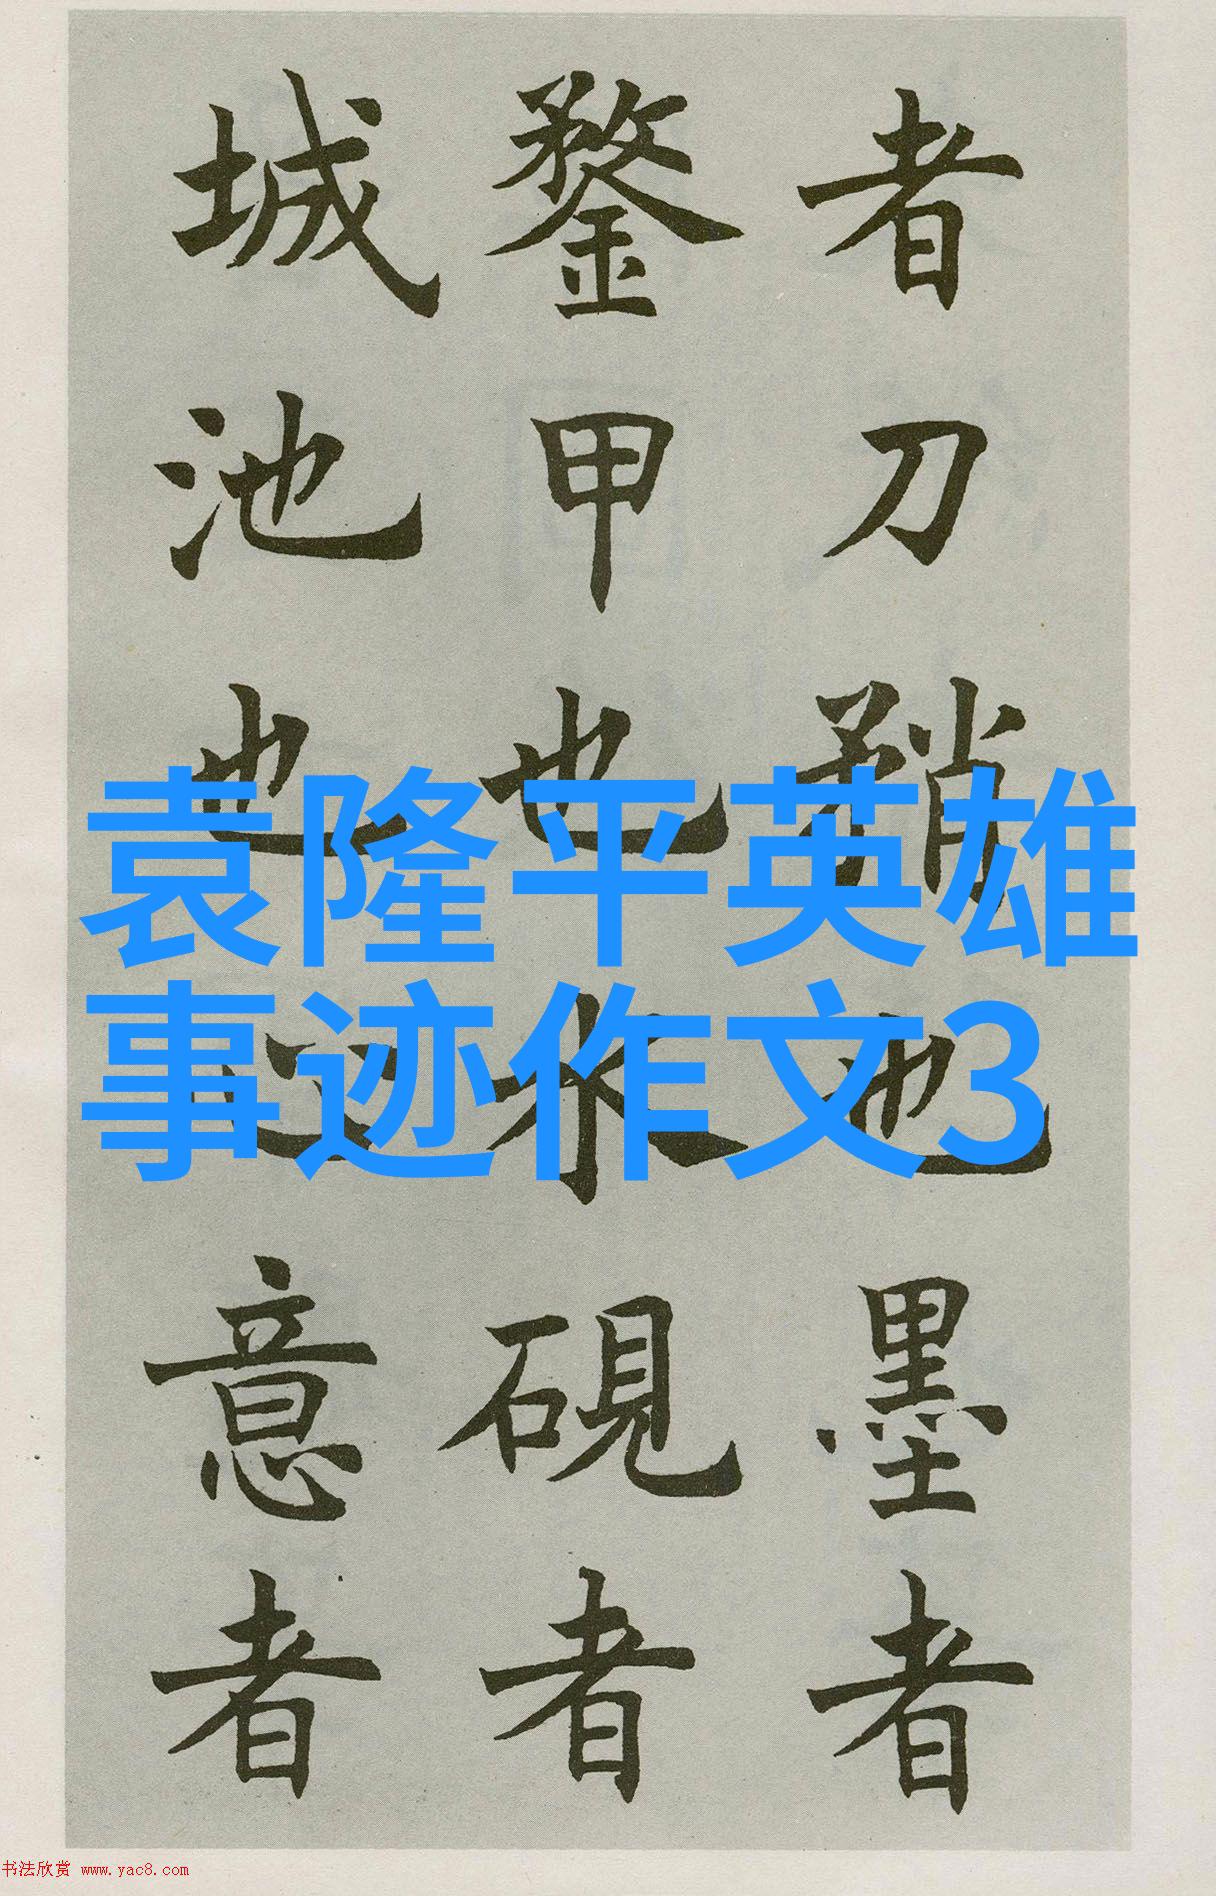 者刀矟也墨者
鍪甲也水硯者
城池也心意者
袁隆平英雄
事迹作文3
书法欣赏 www.yac8.com